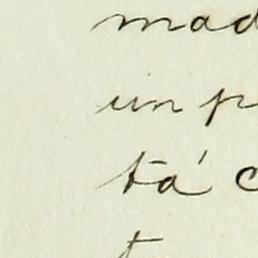 mad
un p
tá c
t